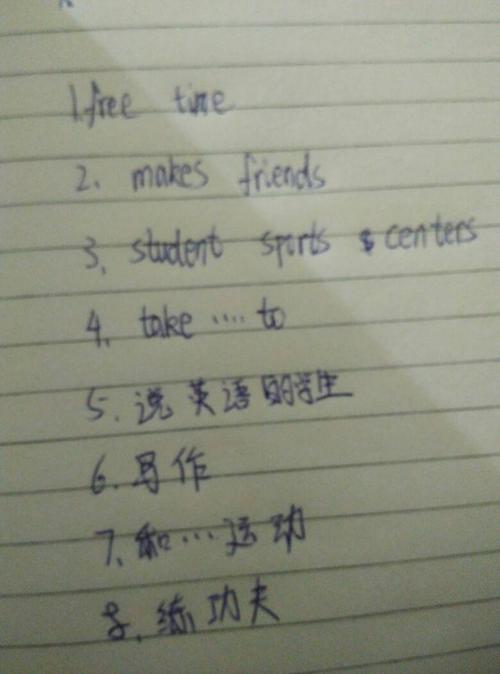 1.free time
2. makes friends
3. student sports centers
4. take .... to
5. 说英语的学生
6. 写作
7. 和...运动
8. 练功夫